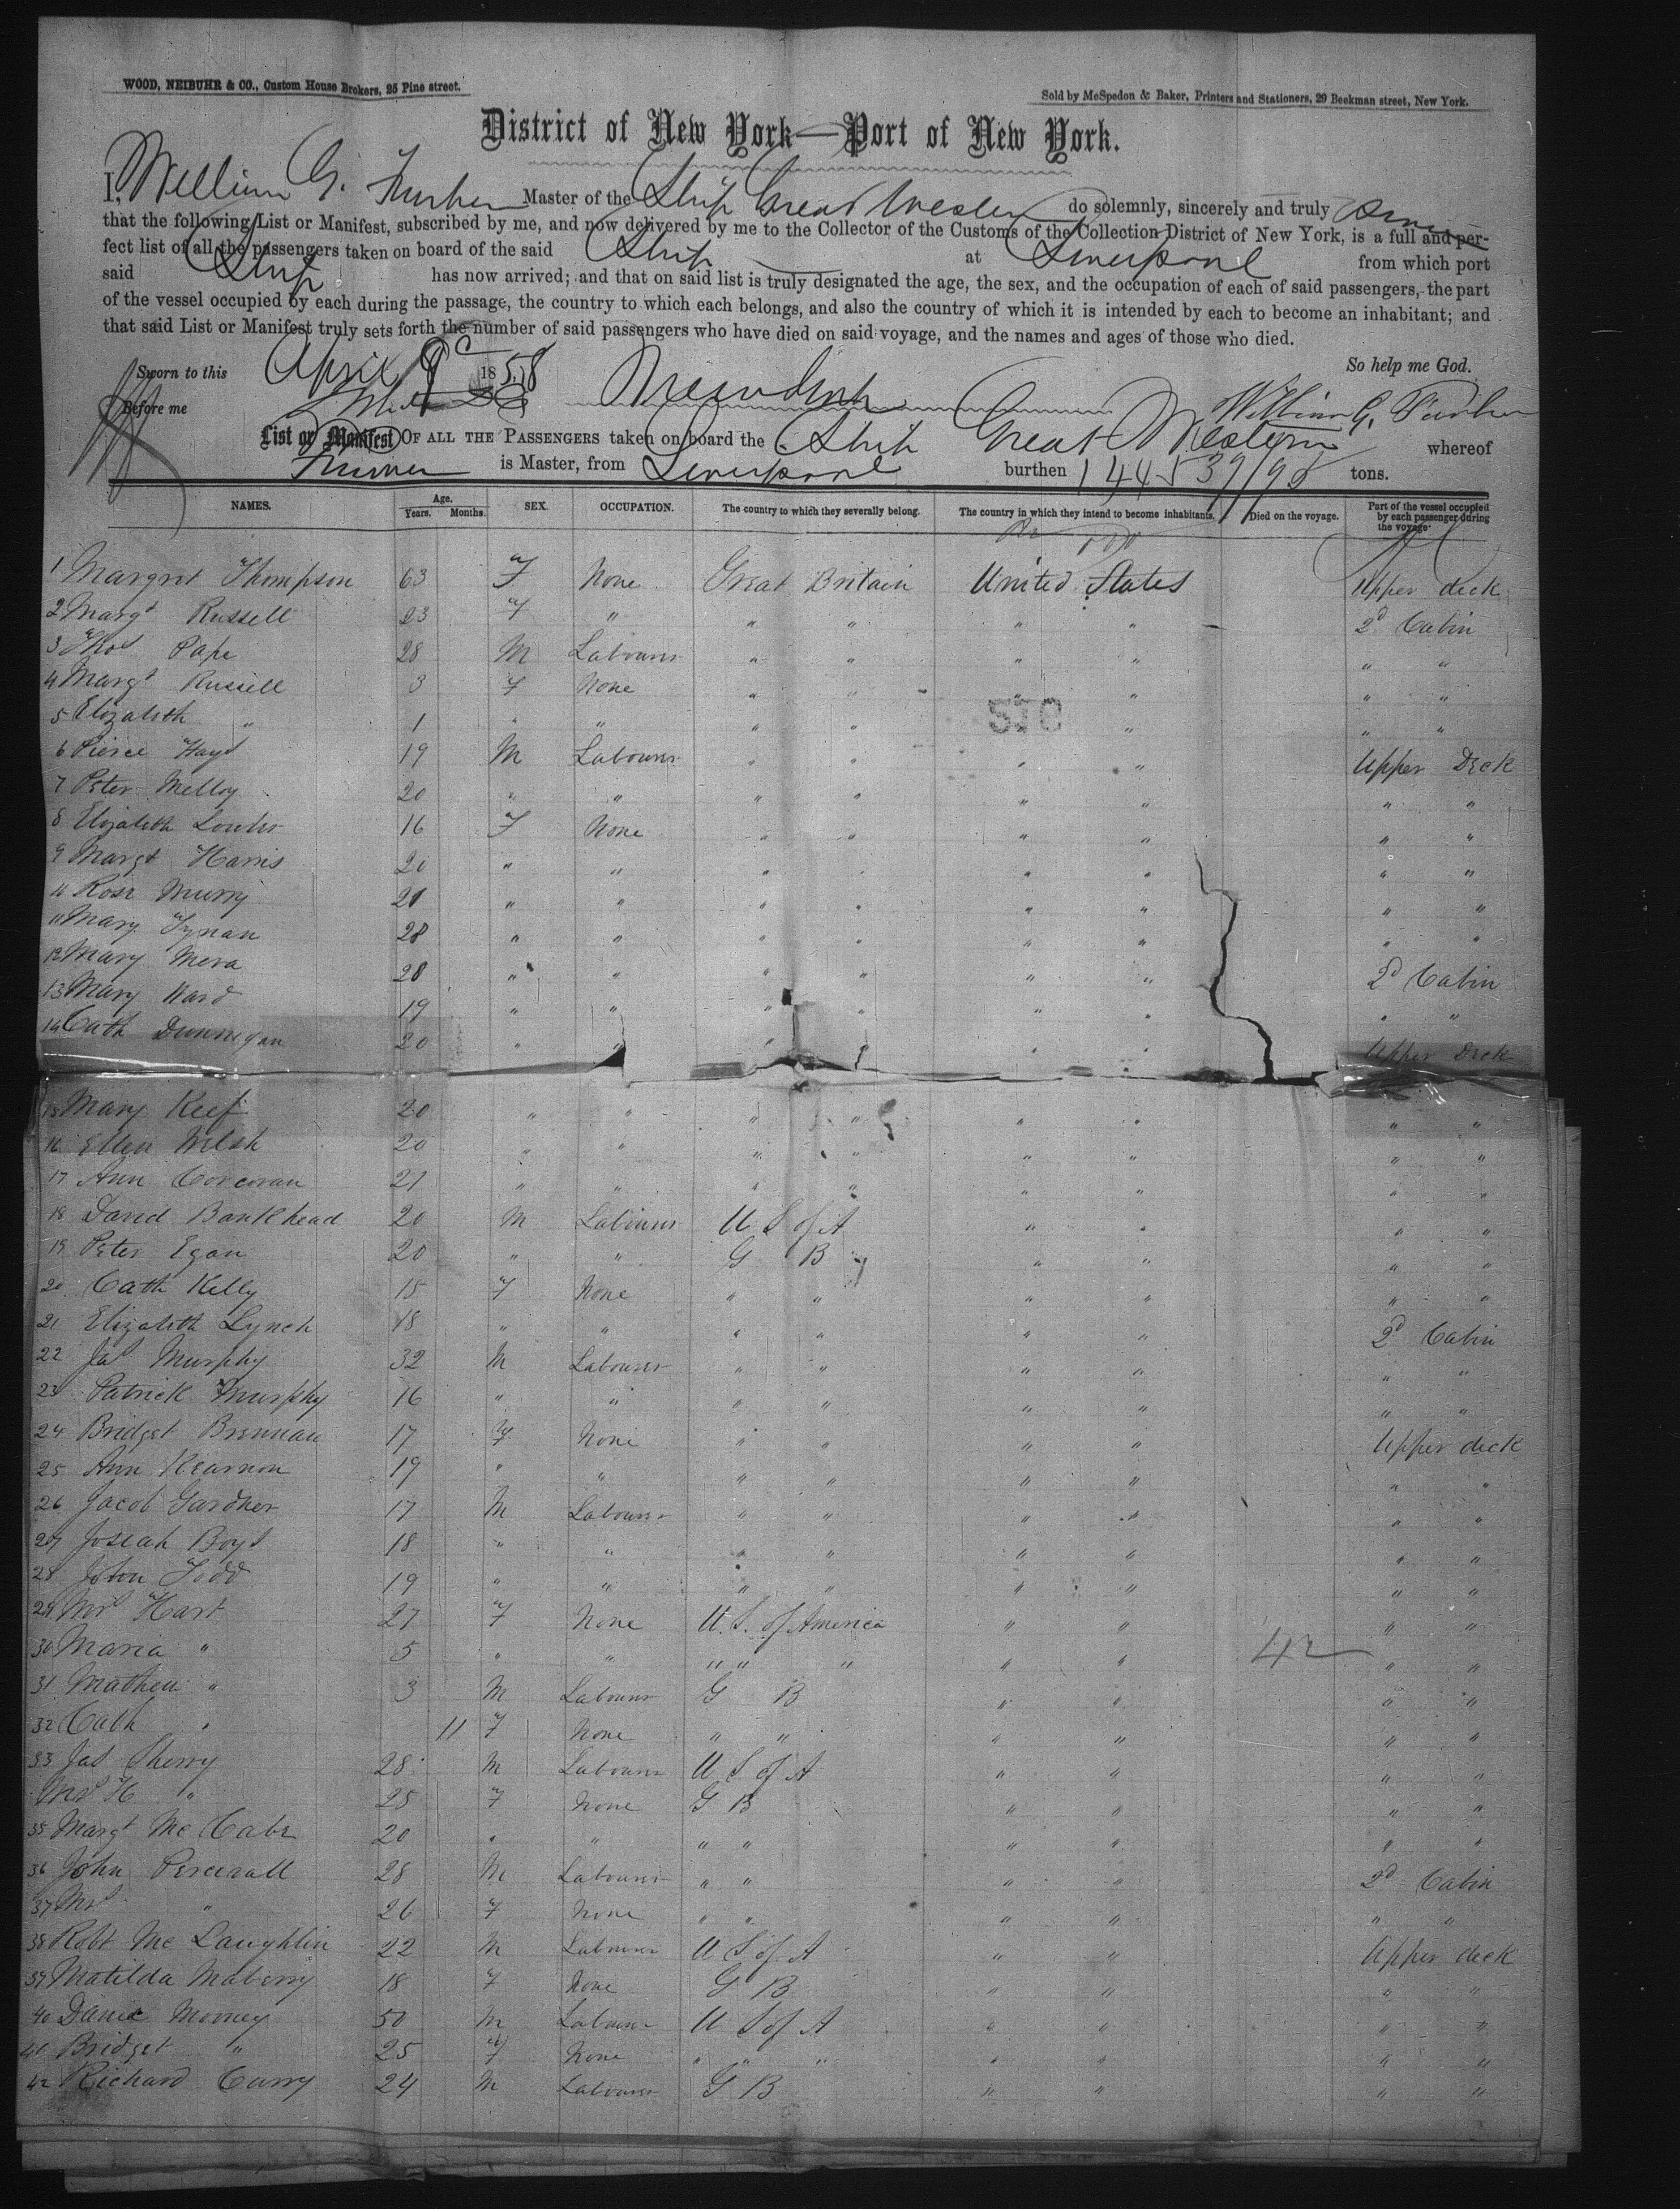 WOOD, NEIBUHR & CO., Custom House Brokers, 25 Pine street.
Sold by McSpedon & Baker, Printers and Stationers, 29 Beekman street, New York.
District of New York—Port of New York.
I, William G. Furber Master of the Ship Great Western do solemnly, sincerely and truly Swear
that the following List or Manifest, subscribed by me, and now delivered by me to the Collector of the Customs of the Collection District of New York, is a full and per-
fect list of all the passengers taken on board of the said Ship at Liverpool from which port
said Ship has now arrived; and that on said list is truly designated the age, the sex, and the occupation of each of said passengers, the part
of the vessel occupied by each during the passage, the country to which each belongs, and also the country of which it is intended by each to become an inhabitant; and
that said List or Manifest truly sets forth the number of said passengers who have died on said voyage, and the names and ages of those who died.
Sworn to this April 9 1858 So help me God.
Before me William G. Furber
List or Manifest OF ALL THE PASSENGERS taken on board the Ship Great Western whereof
is Master, from Liverpool burthen 1445 39/95 tons.
NAMES. Age. Years. Months. SEX. OCCUPATION. The country to which they severally belong. The country in which they intend to become inhabitants. Died on the voyage. Part of the vessel occupied by each passenger during the voyage
1 Margret Thompson 63 F None Great Britain United States Upper deck
2 Margt Russell 23 F " " " " " 2d Cabin
3 Thos Pape 28 M Labourer " " " " " "
4 Margt Russell 3 F None " " " " " "
5 Elizabeth " 1 " " " " " " " "
STC
6 Pierce Hays 19 M Labourer " " " " Upper Deck
7 Peter Melloy 20 " " " " " " " "
8 Elizabeth Lowler 16 F None " " " " " "
9 Margt Harris 20 " " " " " " " "
10 Rose Murry 21 " " " " " " " "
11 Mary Tynan 28 " " " " " " " "
12 Mary Mera 28 " " " " " " 2d Cabin
13 Mary Ward 19 " " " " " " " "
14 Cath Dunnegan 20 " " " " " " Upper Deck
15 Mary Keef 20 " " " " " " " "
16 Ellen Welsh 20 " " " " " " " "
17 Ann Corcoran 21 " " " " " " " "
18 David Bankhead 20 M Labourer U S of A " " " "
19 Peter Egan 20 " " G B " " " "
20 Cath Kelly 15 F None " " " " " "
21 Elizabeth Lynch 18 " " " " " " 2d Cabin
22 Jas Murphy 32 M Labourer " " " " " "
23 Patrick Murphy 16 " " " " " " " "
24 Bridget Brennan 17 F None " " " " Upper deck
25 Ann Kearnon 19 " " " " " " " "
26 Jacob Gardner 17 M Labourer " " " " " "
27 Josiah Boyd 18 " " " " " " " "
28 John Todd 19 " " " " " " " "
29 Mrs Hart 27 F None U. S. of America " " " "
30 Maria " 5 " " " " " " " 42 " "
31 Mathew " 3 M Labourer G B " " " "
32 Cath " 11 F None " " " " " "
33 Jas Sherry 28 M Labourer U S of A " " " "
Mrs H " 25 F None G B " " " "
35 Margt Mc Cabe 20 " " " " " " " "
36 John Percivall 28 M Labourer " " " " 2d Cabin
37 Mrs " 26 F None " " " " " "
38 Robt Mc Laughlin 22 M Labourer U S of A " " Upper deck
39 Matilda Maberry 18 F None G B " " " "
40 Daniel Mooney 50 M Labourer U S of A " " " "
41 Bridget " 25 F None " " " " " " "
42 Richard Curry 24 M Labourer G B " " " "